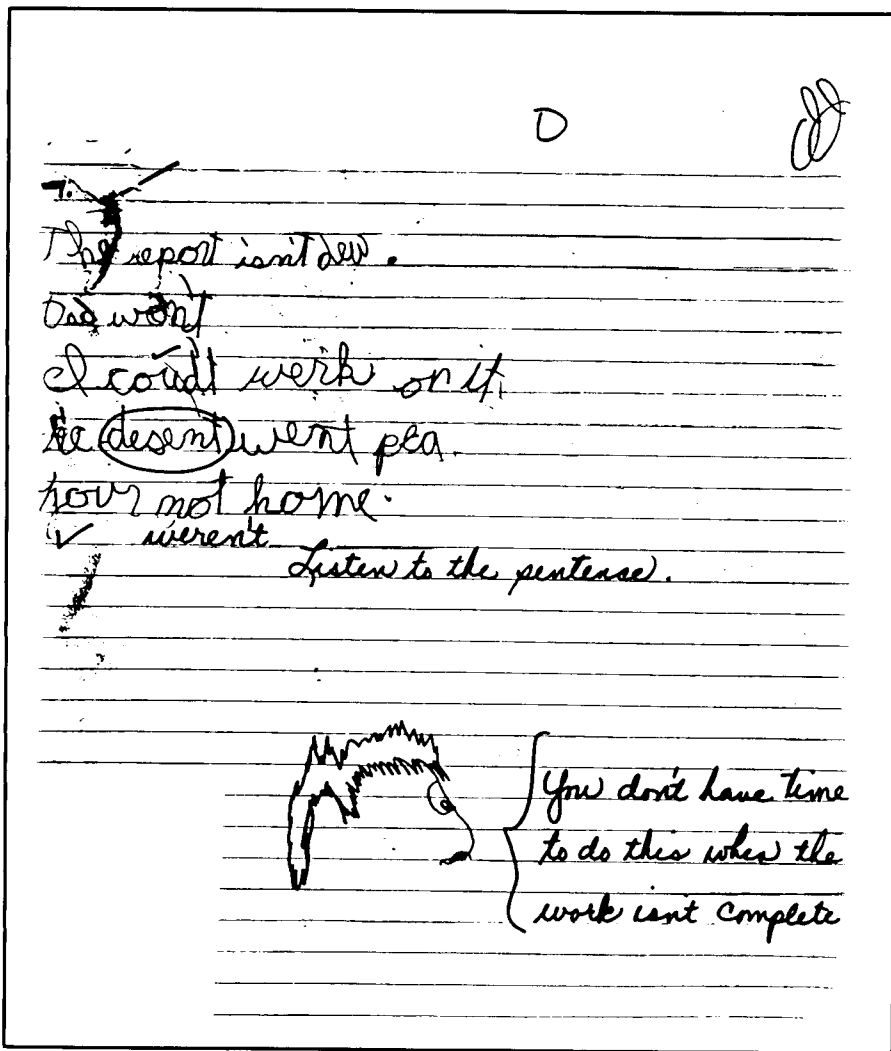 D
7.
The report isn't dew.
Dad won't
I coud't werk on it.
he desent went pea.
hour not home.
✓ weren't
Listen to the sentense.
You don't have time
to do this when the
work isn't complete